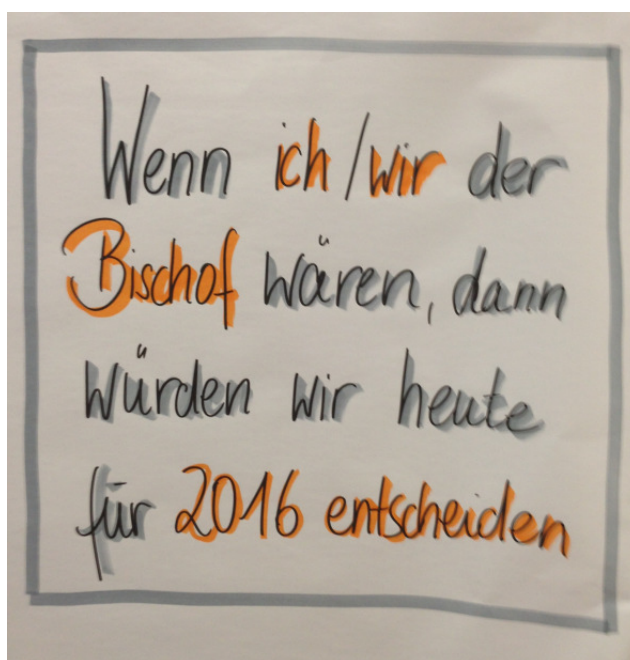 Wenn ich/wir der
Bischof wären, dann
würden wir heute
für 2016 entscheiden